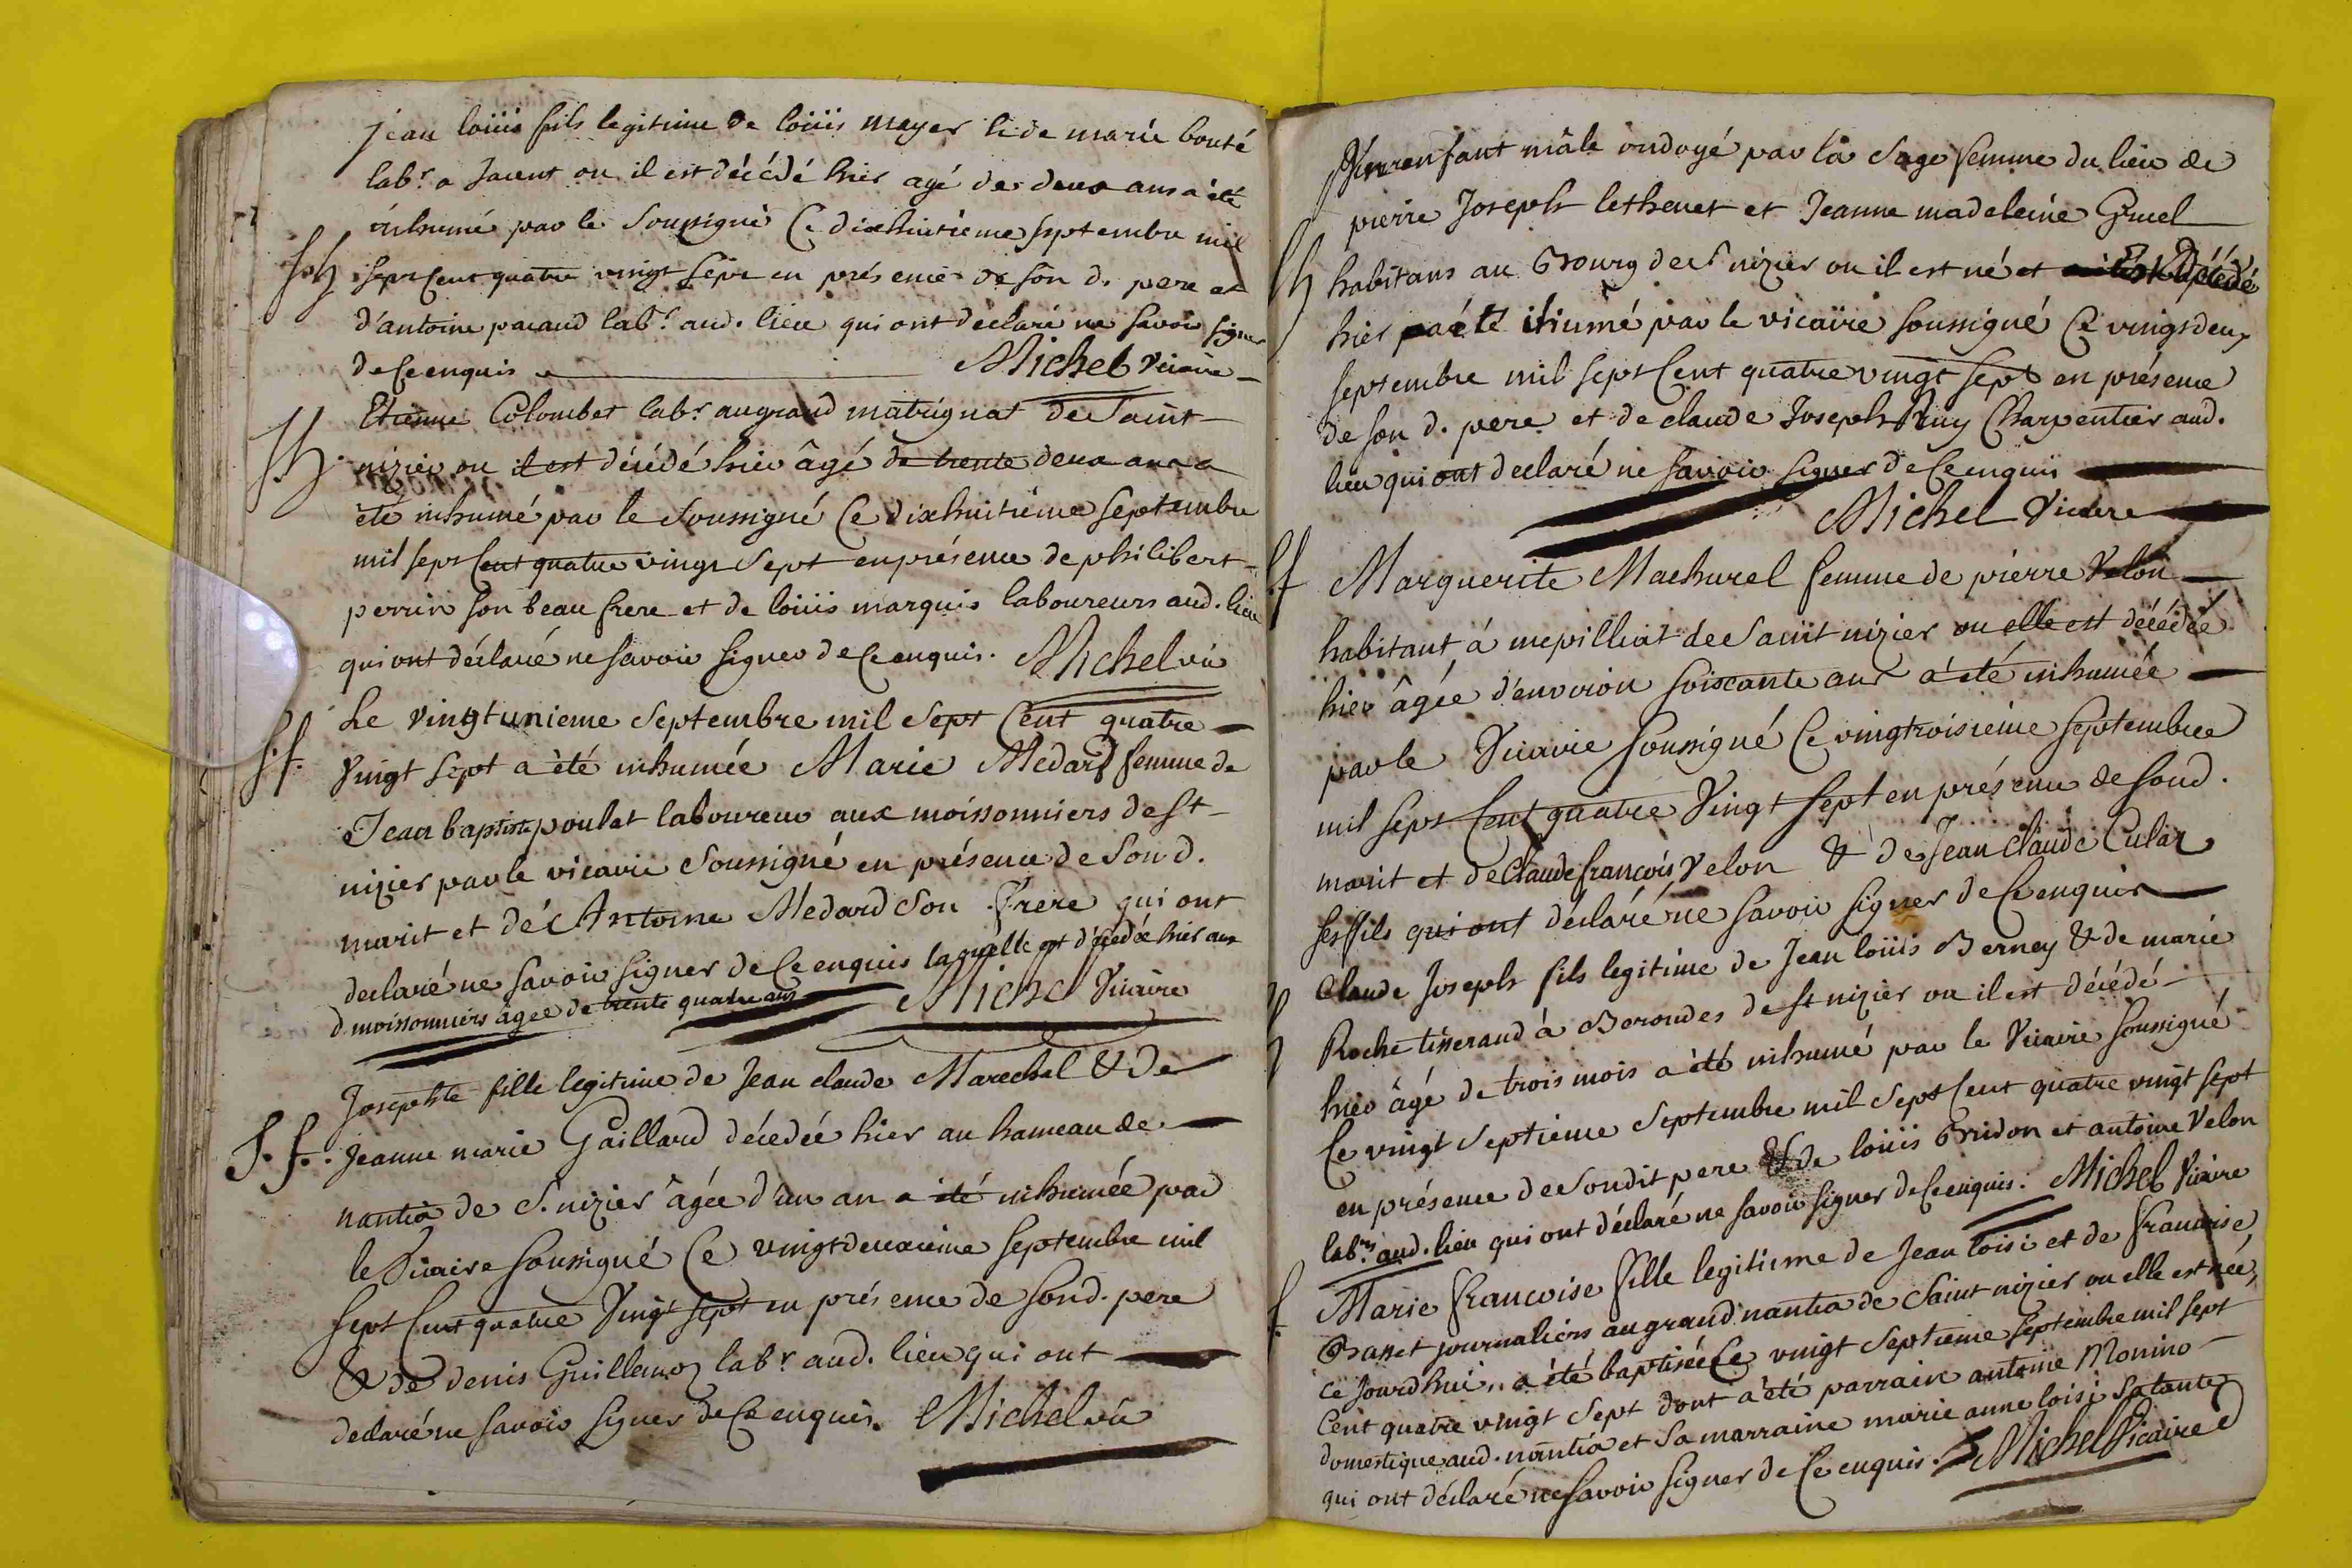 jean loüis fils legitime de loüis mayer & de marie bouté
labr. a Jacent ou il est décédé hier agé de deux ans a été
inhumé par le Soussigné Ce dixhuitième septembre mil
Sh sept Cent quatre vingt sept en présence de son d. pere et
d'antoine pacaud labr. aud. lieu qui ont declaré ne savoir signer
de Ce enquis Michel Vicaire
Etienne Colombet labr. au grand matrignat de Saint
Sh. nizier ou il est décédé hier âgé de trente deux ans a
été inhumé par le Soussigné Ce dixhuitième Septembre
mil sept Cent quatre vingt Sept en présence de philibert
perrin son beau frere et de loüis marquis laboureurs aud. lieu
qui ont déclaré ne savoir signer de Ce enquis. Michel vic
Le vingtunieme Septembre mil Sept Cent quatre
S.f. Vingt Sept a été inhumée Marie Medard femme de
Jean baptiste poulet laboureur aux moissonniers de St
nizier par le vicaire Soussigné en présence de Son d.
marit et de Antoine Medard Son frere qui ont
declaré ne savoir signer de Ce enquis laquelle est décedée hier aux
d. moissonniers âgée de trente quatre ans Michel Vicaire
Josephte fille legitime de Jean claude Marechal & de
S.f. Jeanne marie Gaillard décedée hier au hameau de
nantia de S. nizier âgée d'un an a été inhumée par
le Vicaire Soussigné Ce vingtdeuxieme Septembre mil
sept Cent quatre Vingt sept en présence de Sond. pere
& de denis Guillemoz labr. aud. lieu qui ont
declaré ne savoir signer de Ce enquis. Michel vic
Un enfant mâle ondoyé par la Sage femme du lieu de
pierre Joseph lethenet et Jeanne madeleine Gruel
Sh habitans au Bourg de S. nizier ou il est né et est décédé
hier a été inhumé par le vicaire soussigné Ce vingtdeux
septembre mil sept Cent quatre vingt sept en présence
de son d. pere et de claude Joseph Ruy Charpentier aud.
lieu qui ont declaré ne savoir signer de Ce enquis
Michel Vicaire
S.f Marguerite Machurel femme de pierre Velon
habitant à mepilliat de Saint nizier ou elle est décédée
hier âgée d'environ soixante ans a été inhumée
par le Vicaire Soussigné Ce vingtroisième Septembre
mil sept Cent quatre Vingt Sept en présence de Sond.
marit et de Claude françois Velon & de Jean claude Culaz
ses fils qui ont déclaré ne savoir signer de Ce enquis
Claude Joseph fils legitime de Jean loüis Berney & de marie
Sh Roche tisserand à Borondes de St nizier ou il est décédé
hier âgé de trois mois a été inhumé par le Vicaire Soussigné
Ce vingt Septieme Septembre mil Sept Cent quatre vingt sept
en présence de Sondit pere & de loüis Bridon et antoine Velon
labrs. aud. lieu qui ont déclaré ne savoir signer de Ce enquis. Michel Vicaire
f. Marie francoise fille legitieme de Jean loisi et de francoise
Basset journaliers au grand nantia de Saint nizier ou elle est née
ce jourdhui, a été baptisée Ce vingt Septieme Septembre mil Sept
Cent quatre vingt Sept dont a été parrain antoine Monino
domestique aud. nantia et Sa marraine marie anne loisi Sa tante
qui ont déclaré ne Savoir Signer de Ce enquis. Michel Vicaire